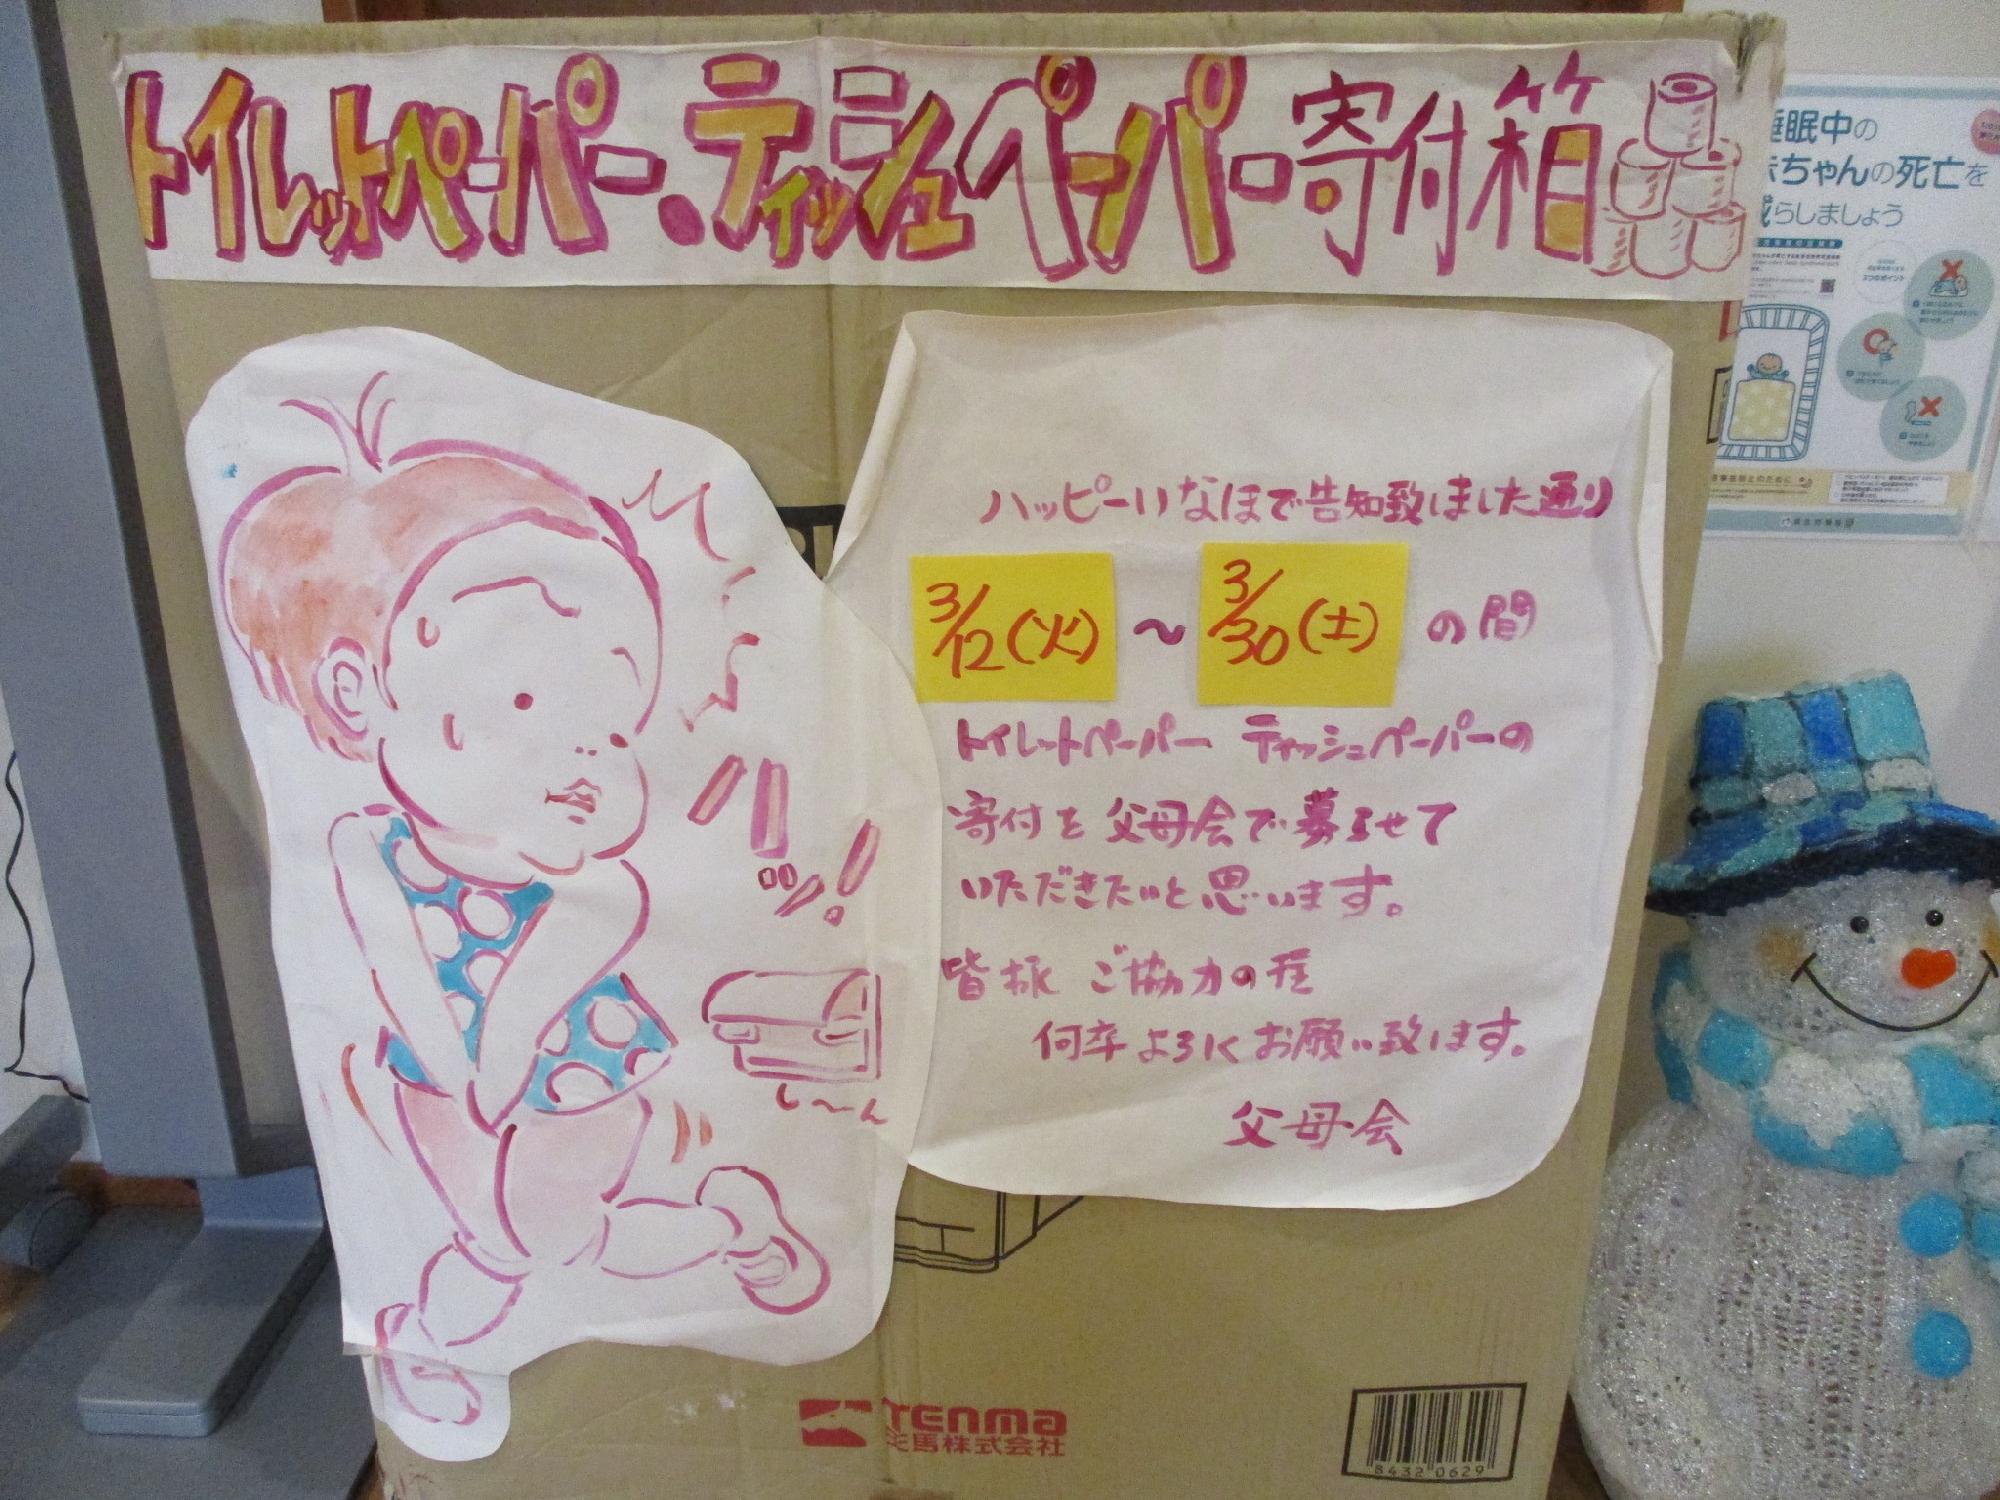 トイレットペーパー・ティッシュペーパー寄付箱
ハッピーいなほで告知致しました通り
3/12(火)〜3/30(土)の間
トイレットペーパー ティッシュペーパーの
寄付を父母会で募らせて
いただきたいと思います。
皆様 ご協力の程
何卒よろしくお願い致します。
父母会
ハッ!
し〜ん
TENMA
天馬株式会社
8432 0629
睡眠中の
赤ちゃんの死亡を
減らしましょう